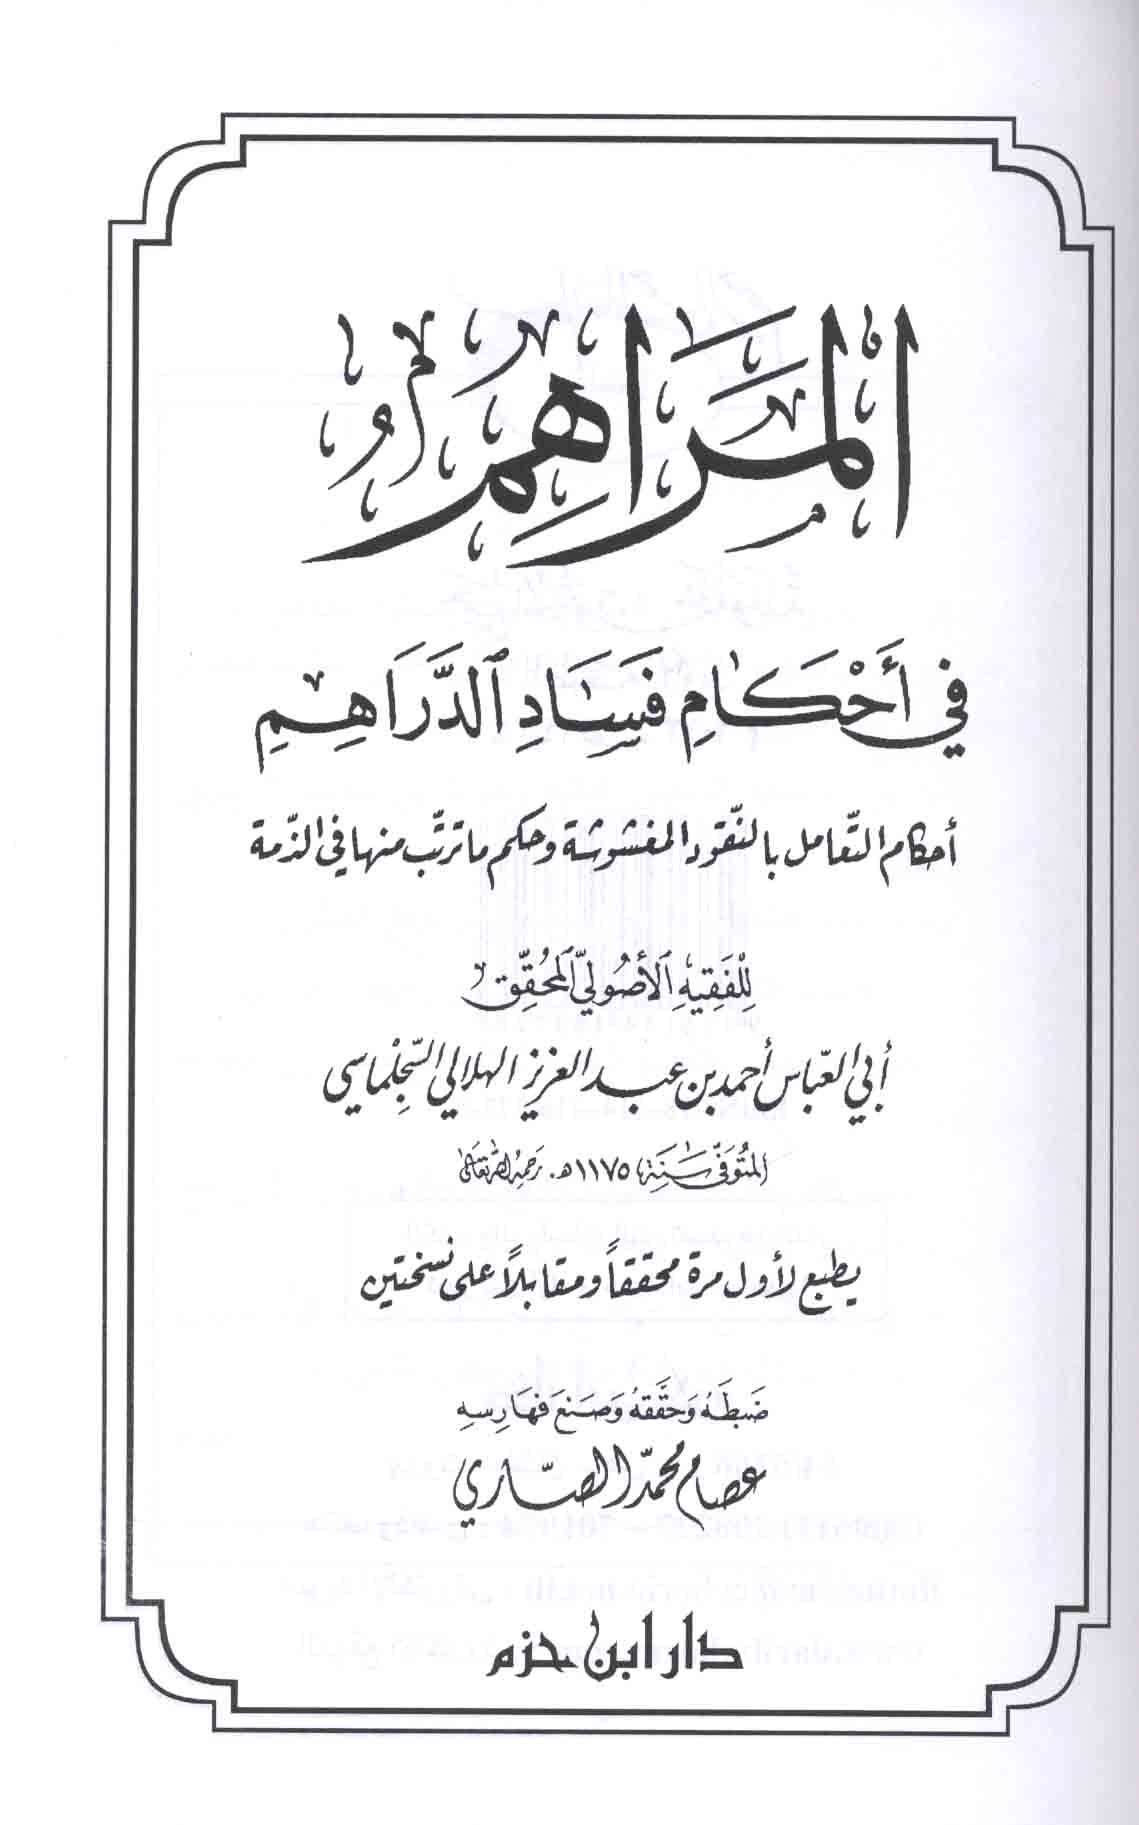 المَرَاهِمُ
في أَحْكَامِ فَسَادِ الدَّرَاهِمِ
أحكام التّعامل بالنّقود المغشوشة وحكم ما ترتّب منها في الذّمة
لِلْفَقِيهِ الأُصُولِيِّ المُحَقِّقِ
أبي العبّاس أحمد بن عبد العزيز الهلالي السِّجِلْماسي
المتُوَفّى سَنَة ١١٧٥هـ. رَحِمَهُ اللهُ تعَالى
يطبع لأول مرة محققاً ومقابلاً على نسختين
ضَبطَهُ وَحَقَّقهُ وَصَنعَ فهَارِسهِ
عصام محمّد الصّاري
دار ابن حزم